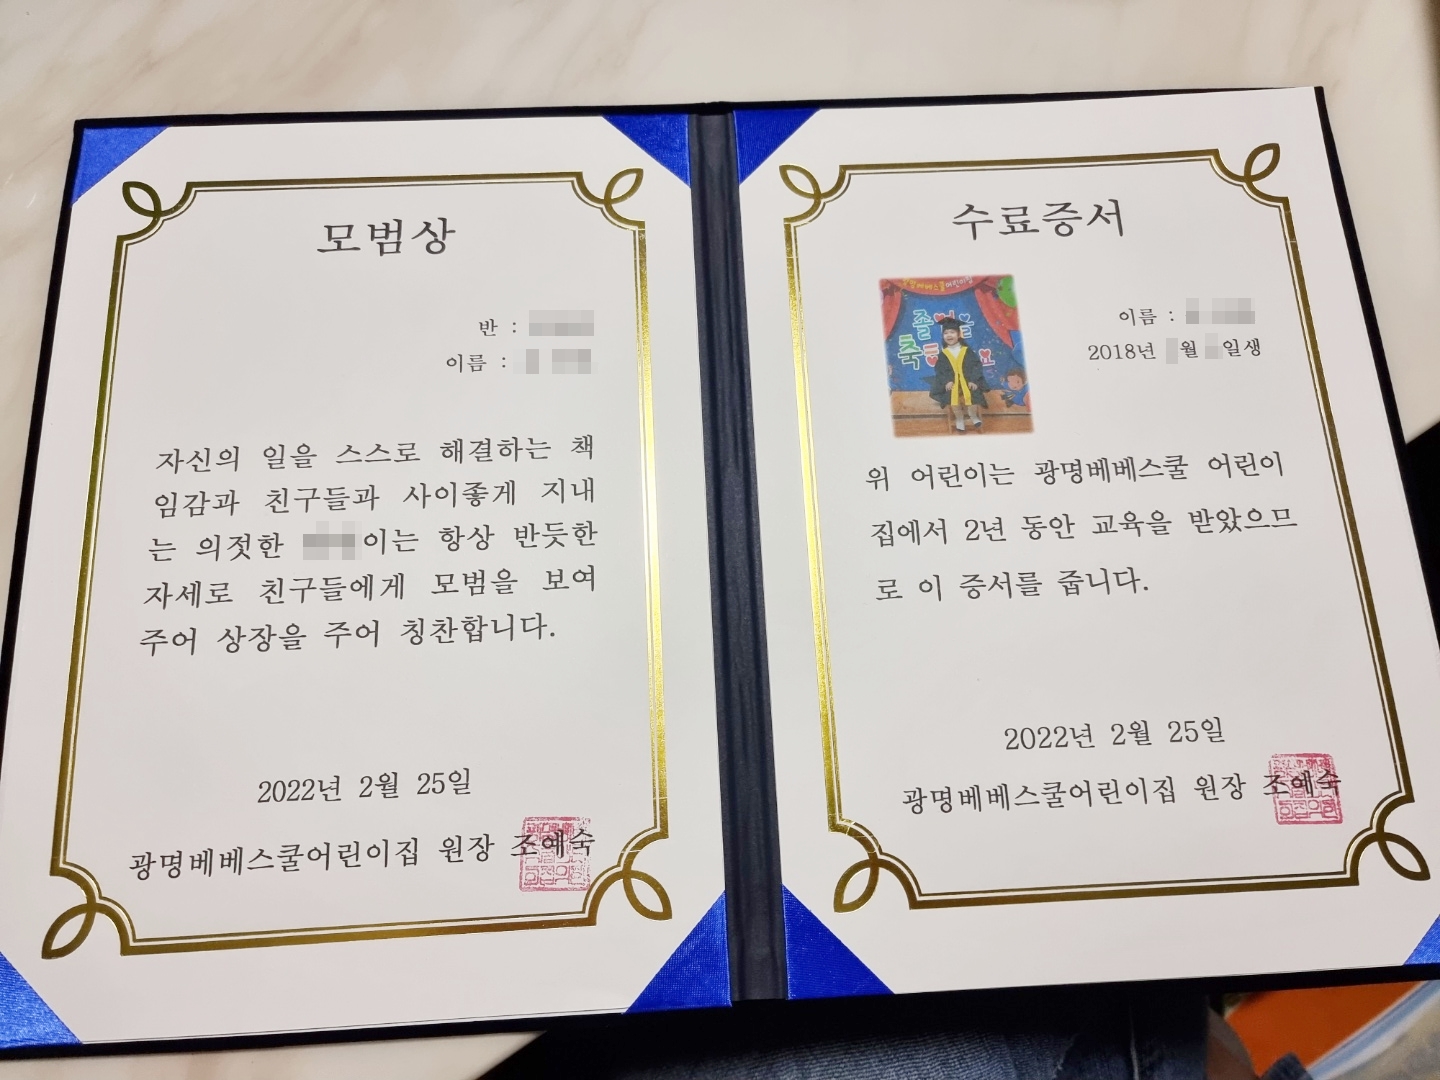 모범상
반 :
이름 :
자신의 일을 스스로 해결하는 책
임감과 친구들과 사이좋게 지내
는 의젓한 이는 항상 반듯한
자세로 친구들에게 모범을 보여
주어 상장을 주어 칭찬합니다.
2022년 2월 25일
광명베베스쿨어린이집 원장 조예숙
수료증서
이름 :
2018년 월 일생
위 어린이는 광명베베스쿨 어린이
집에서 2년 동안 교육을 받았으므
로 이 증서를 줍니다.
2022년 2월 25일
광명베베스쿨어린이집 원장 조예숙